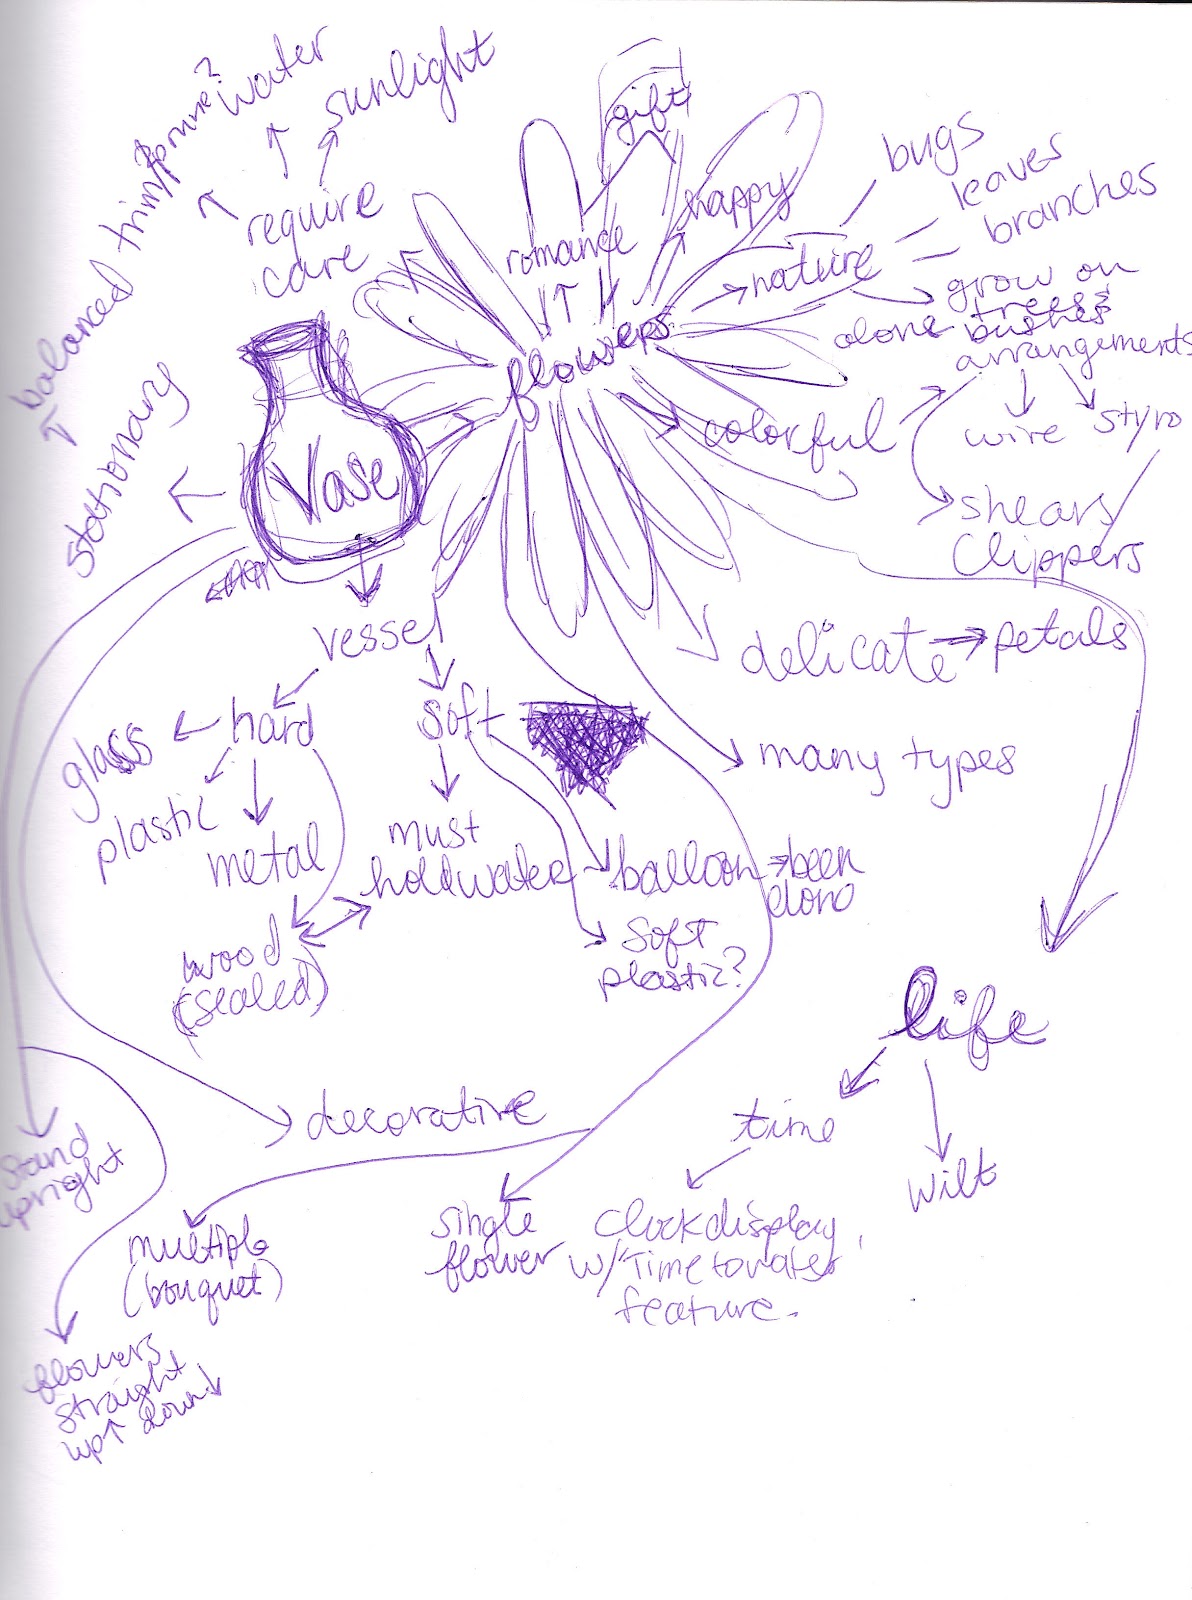 water
sunlight
trim/prune?
require
care
balanced
stationary
Vase
gift
happy
romance
flowers
nature
bugs
leaves
branches
grow on
trees?
bushes
alone
arrangements
wire
styro
colorful
shears/
clippers
delicate
petals
many types
vessel
hard
soft
glass
plastic
metal
wood
(sealed)
must
hold water
balloon
been
done
soft
plastic?
life
time
wilt
clock display
w/ "Time to water"
feature.
decorative
stand
upright
multiple
(bouquet)
single
flower
flowers
straight
up↑ down↓